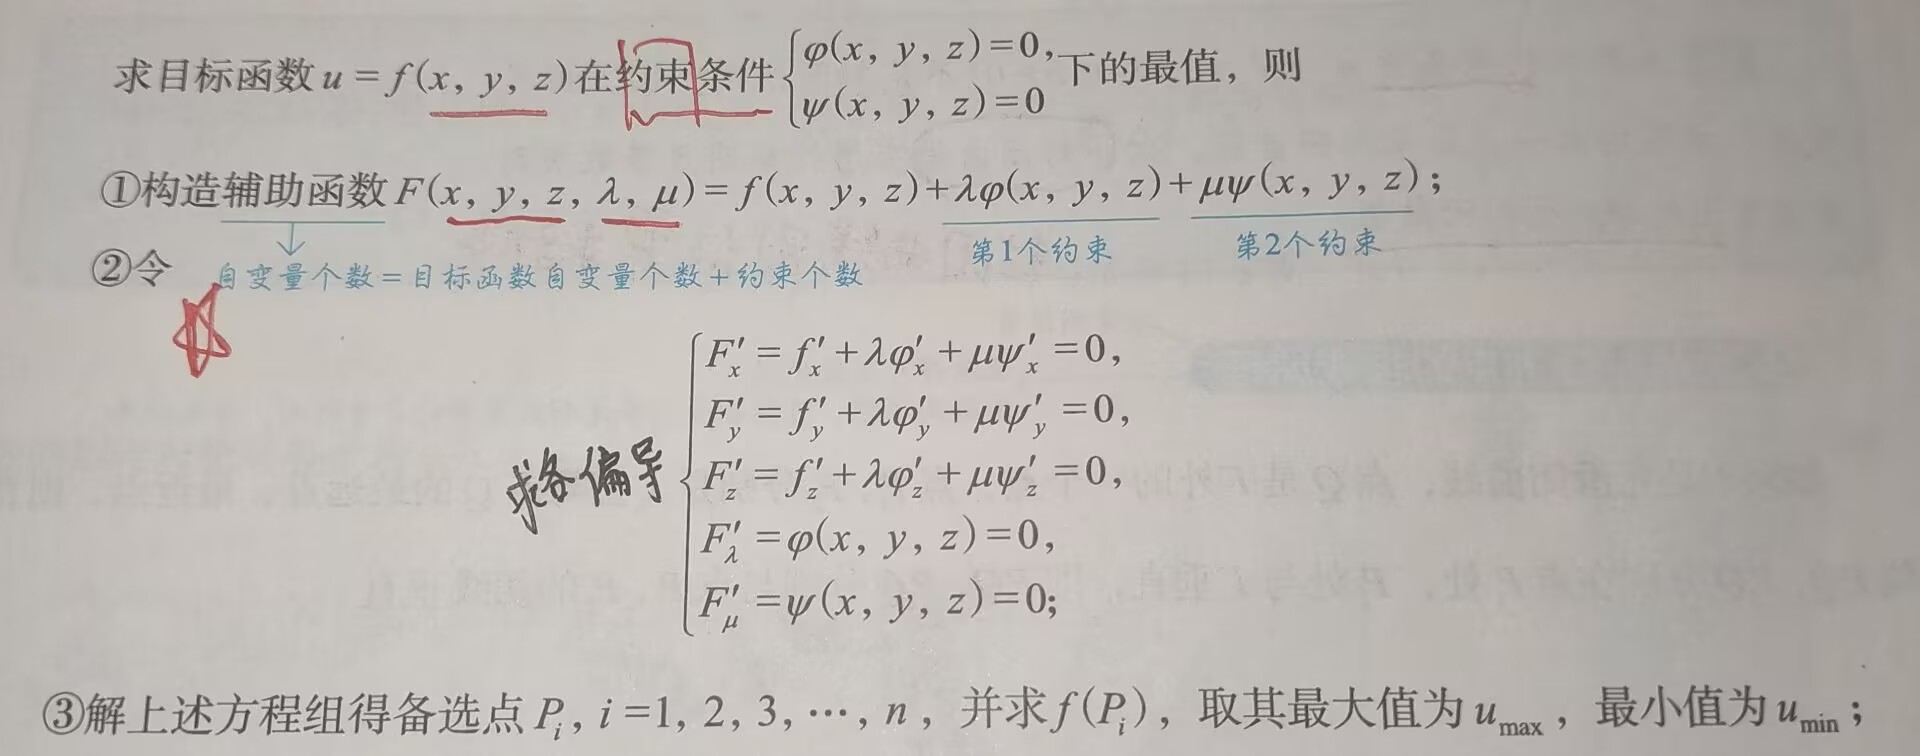 求目标函数 u = f(x, y, z)在约束条件{φ(x, y, z)=0, ψ(x, y, z)=0 下的最值，则
①构造辅助函数 F(x, y, z, λ, μ)= f(x, y, z)+λφ(x, y, z)+μψ(x, y, z)；
第1个约束 第2个约束
②令
自变量个数=目标函数自变量个数+约束个数
F′x = f′x +λφ′x + μψ′x =0,
F′y = f′y +λφ′y + μψ′y =0,
求各偏导
F′z = f′z +λφ′z + μψ′z =0,
F′λ =φ(x, y, z)=0,
F′μ =ψ(x, y, z)=0;
③解上述方程组得备选点 Pi, i =1, 2, 3, …, n，并求 f(Pi)，取其最大值为 umax，最小值为 umin；